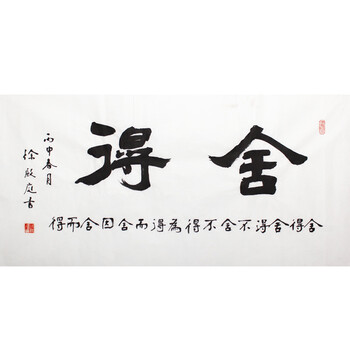 舍得
舍得舍得不舍不得為得而舍因舍而得
丙申春月
徐殷庭书